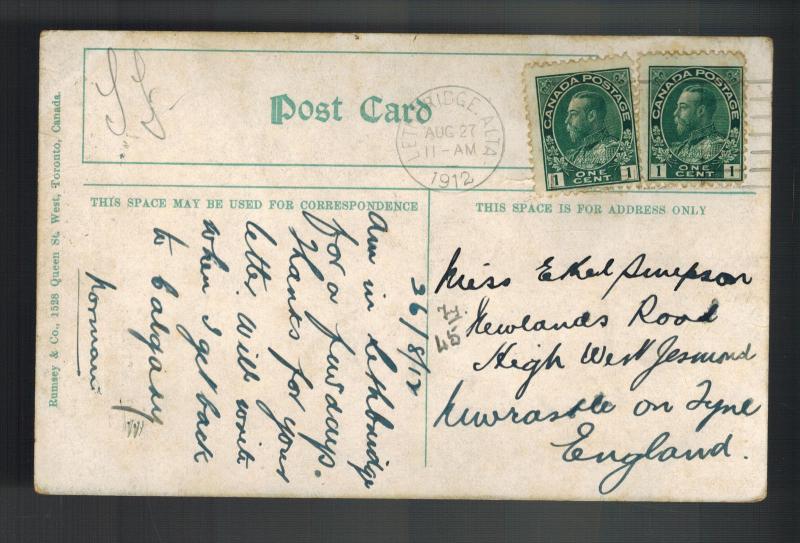 Post Card
LETHBRIDGE ALTA
AUG 27
11-AM
1912
CANADA POSTAGE
1 ONE CENT 1
CANADA POSTAGE
1 ONE CENT 1
THIS SPACE MAY BE USED FOR CORRESPONDENCE
THIS SPACE IS FOR ADDRESS ONLY
Rumsey & Co., 1528 Queen St. West, Toronto, Canada.
26/8/12
Am in Lethbridge
for a few days.
Thanks for your
letter. Will write
when I get back
to Calgary
Norman
Miss Ethel Simpson
Newlands Road
High West Jesmond
Newcastle on Tyne
England.